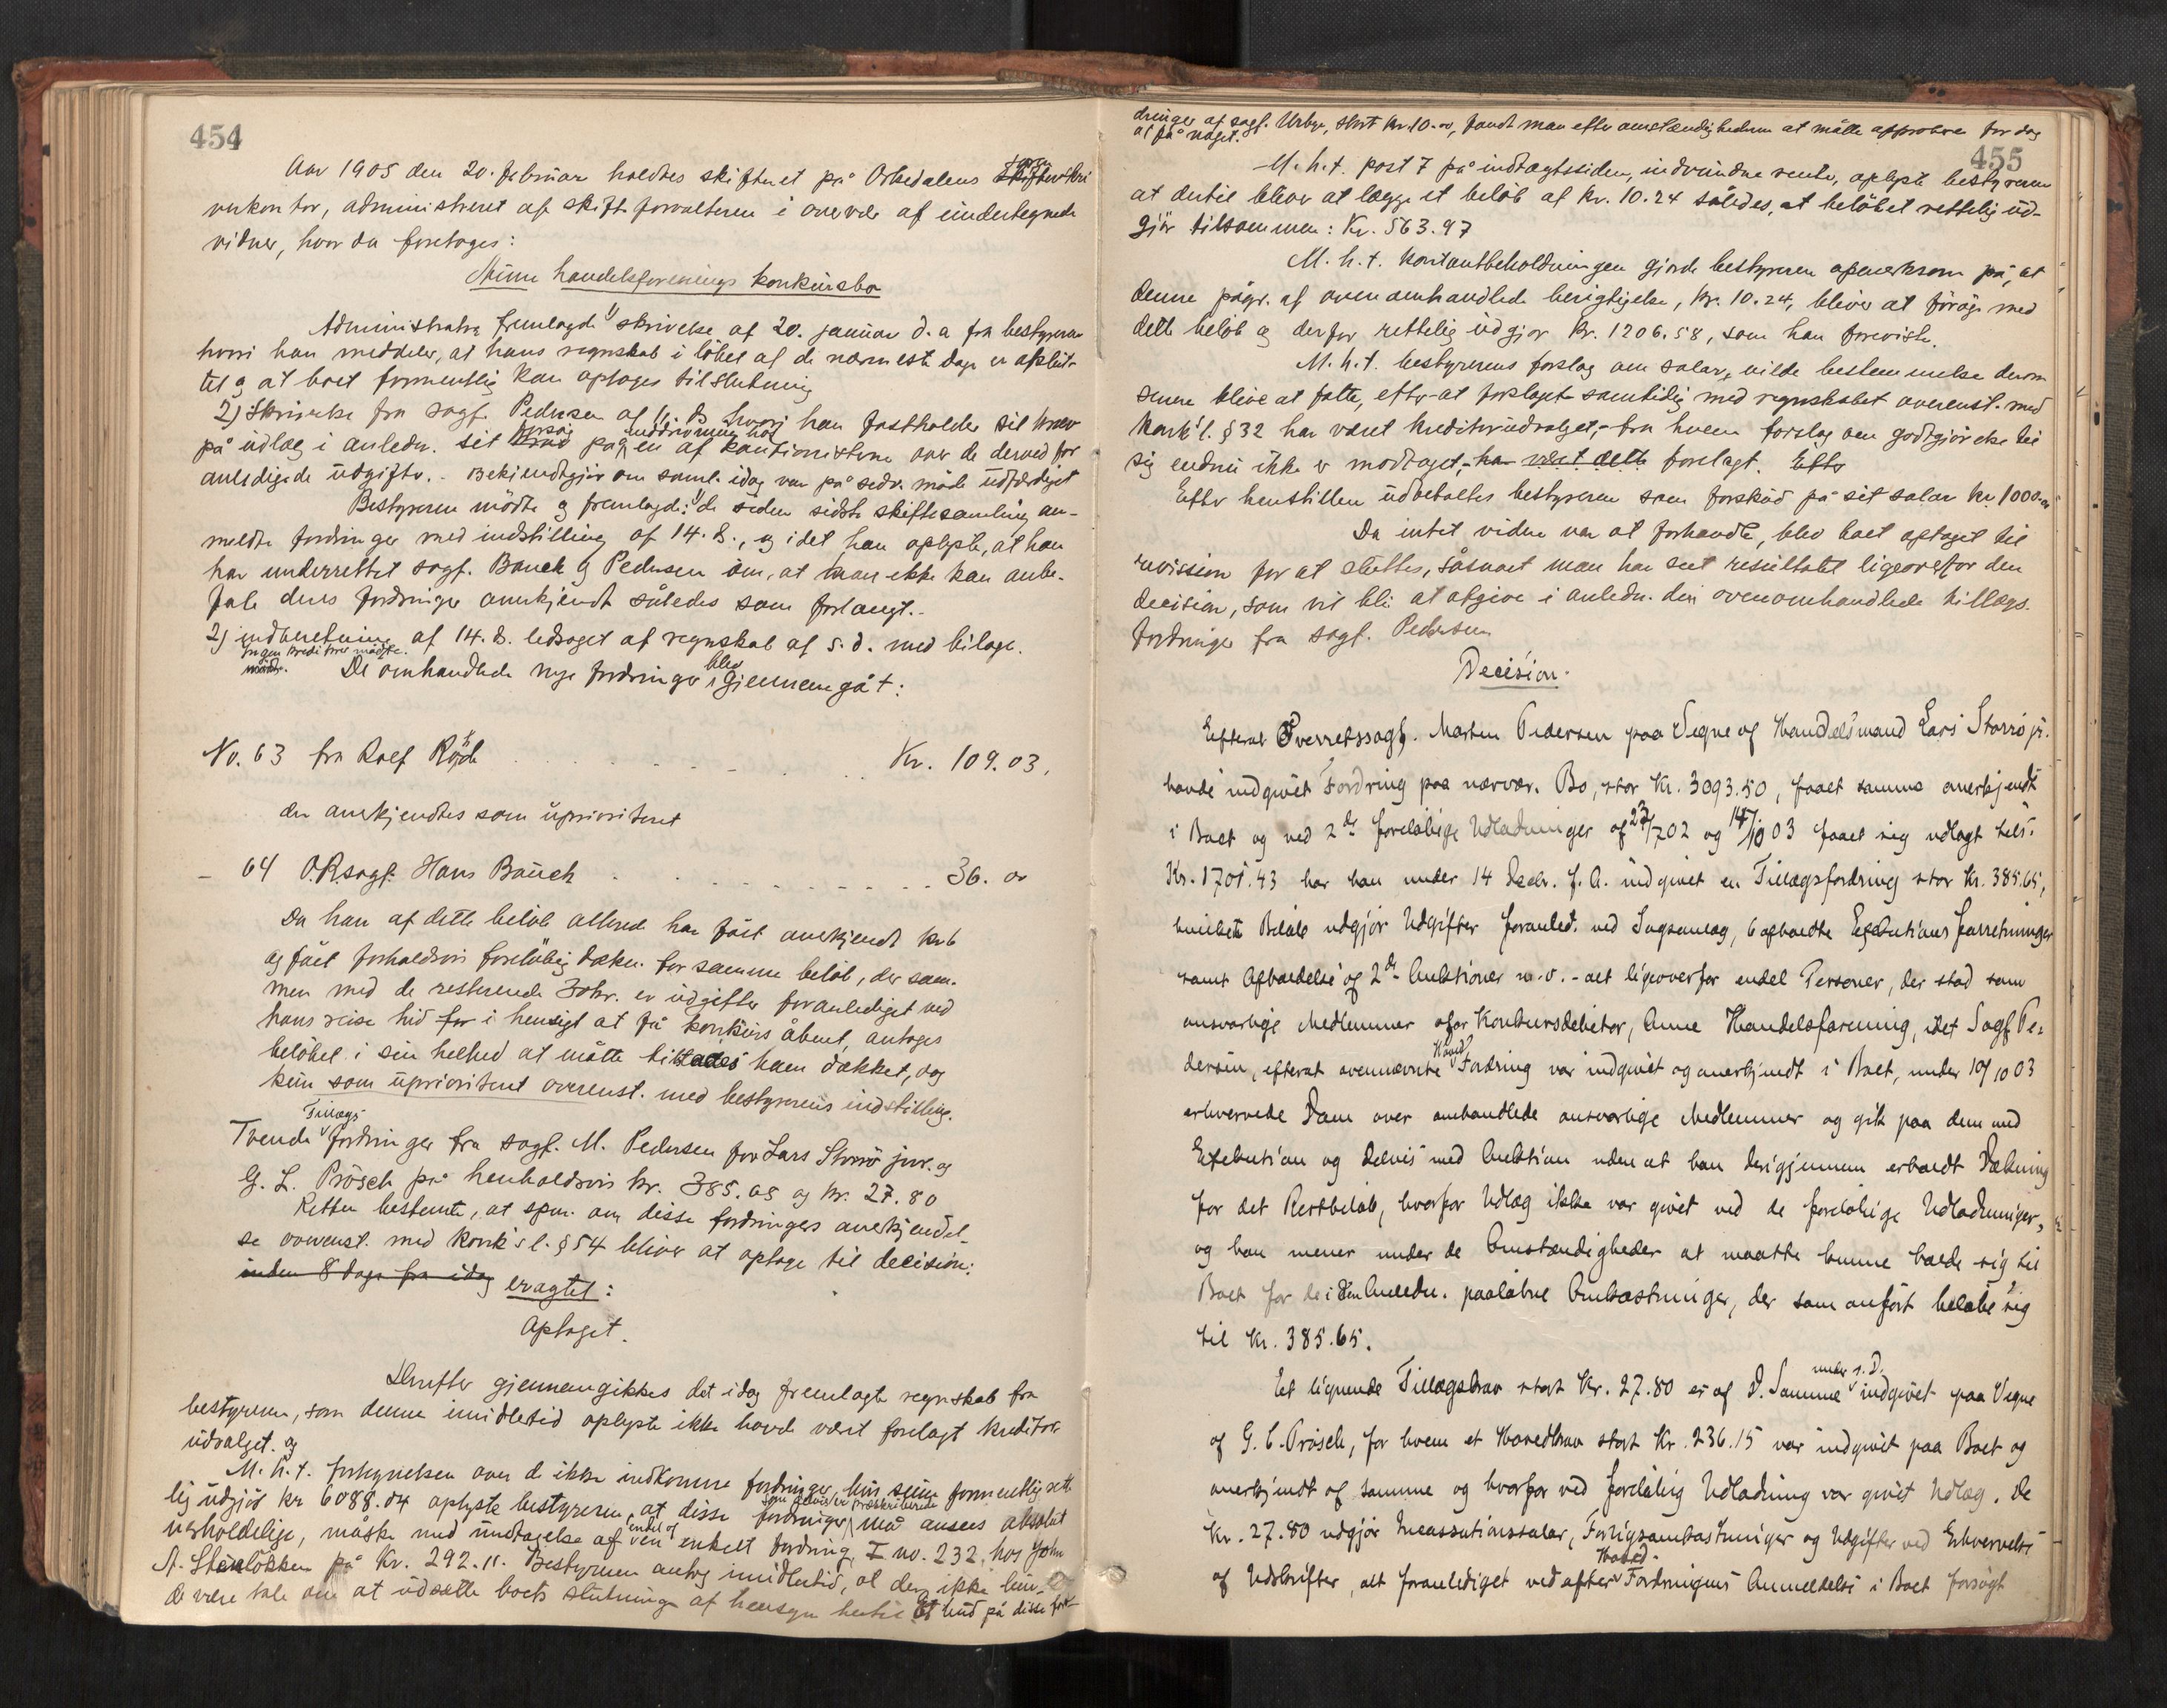 454
Aar 1905 den 20. februar holdtes skifteret på Orkedalens sorenskri
verkontor, administreret af skifteforvalteren i overvær af undertegnede
vidner, hvor da foretoges:
handelsforenings konkursbo
Administrator fremlagde 1) skrivelse af 20. januar d. a fra bestyreren
hvori han meddeler, at hans regnskab i løbet af de nærmeste dage er afslut-
tet og at boet formentlig kan optages til slutning
2) Skrivelse fra sagf. Pedersen af 11. ds. hvori han fastholder sit krav
på udlæg i anledn. sit forsøg på inddrivning hos en af kautionisterne over de derved for
anledigede udgifter. - Bekjendtgjør om saml. idag var på sedv. måde udfærdiget
Bestyreren mødte og fremlagde: 1) de siden sidste skiftesamling an-
meldte fordringer med indstilling af 14. ds., og idet han oplyste, at han
har underrettet sagf. Bauck og Pedersen om, at man ikke kan anbe-
fale deres fordringer anerkjendt således som forlangt.-
2) indberetning af 14. ds. ledsaget af regnskab af s. d. med bilage.
Ingen kreditorer mødte.
De omhandlede nye fordringer blev gjennemgåt:
No. 63 fra Rolf . . . . . . . . Kr. 109.03.
der anerkjendtes som uprioriteret
- 64 O.R.sagf. Hans Bauck . . . . . . . . 36. 00
Da han af dette beløb allerede har fået anerkjendt kr 6
og fået forholdsvis foreløbig dækn. for samme beløb, der sam-
men med de resterende 30 kr. er udgifter foranlediget ved
hans reise hid for i hensigt at få konkurs åbnet, antages
beløbet i sin helhed at måtte tillades ham dækket, dog
kun som uprioriteret overenst. med bestyrerens indstilling.
Tvende Tillægsfordringer fra sagf. M. Pedersen for Lars Storrø jun. og
G. L. Prøsch på henholdsvis kr. 385.65 og kr. 27.80
Retten bestemte, at spm. om disse fordringers anerkjendel-
se overenst. med konk's l. § 54 bliver at optage til decision:
inden 8 dage fra idag eragtet:
Optaget.
Derefter gjennemgikkes det idag fremlagte regnskab fra
bestyreren, som denne imidlertid oplyste ikke havde været forelagt kreditor
udvalget. og
M. h. t. fortegnelsen over de ikke indkomne fordringer, hvis sum formentlig ret-
lig udgjør kr 6088.04 oplyste bestyreren, at disse fordringer, som delvis er præskriberede må ansees absolut
uerholdelige, måske med undtagelse af endel af en enkelt fordring, I no. 232, hos John
A. Stenløkken på Kr. 292.11. Bestyreren antog imidlertid, at der ikke kun-
de være tale om at udsætte boets slutning af hensyn hertil. Et bud på disse for-
455
dringer af sagf. Urbye, stort kr. 10.00, fandt man efter omstændighederne at måtte approbere for dog
at få noget.
M. h. t. post 7 på indtægtssiden, indvundne rente, oplyste bestyreren
at dertil bliver at lægge et beløb af kr. 10.24 således, at beløbet rettelig ud-
gjør tilsammen: Kr. 563.97
M. h. t. kontantbeholdningen gjorde bestyreren opmerksom på, at
denne pågr. af ovenomhandlede berigtigelse, kr. 10.24, bliver at forøge med
dette beløb og derfor rettelig udgjør kr. 1206.58, som han foreviste.
M. h. t. bestyrerens forslag om salar, vilde bestemmelse derom
senere blive at fatte, efter at forslaget samtidig med regnskabet overenst. med
konk'l. § 32 har været kreditorudvalget,- fra hvem forslag om godtgjørelse til
sig endnu ikke er modtaget,- har været dette forelagt. Efter
Efter henstillen udbetaltes bestyreren som forskud på sit salar kr 1000.00
Da intet videre var at forhandle, blev boet optaget til
revision for at sluttes, såsnart man har seet resultatet ligeoverfor den
decision, som vil bli at afgive i anledn. den ovenomhandlede tillægs-
fordringer fra sagf. Pedersen
Decision.
Efterat Overretssagf. Morten Pedersen paa Vegne af Handelsmand Lars Storrø jr.
havde indgivet Fordring paa nærvær. Bo, stor Kr. 3093.50, faaet samme anerkjendt
i Boet og ved 2de foreløbige Udlodninger af 23/7 02 og 14/10 03 faaet sig udlagt tils.
Kr. 1701.43 har han under 14 Decbr. f. A. indgivet en Tillægsfordring stor Kr. 385.65,
hvilket Beløb udgjør Udgifter foranled. ved Sagsanlæg, 6 afholdte Exekutionsforretninger
samt Afholdelse af 2de Auktioner m. v. - alt ligeoverfor endel Personer, der stod som
ansvarlige Medlemmer for Konkursdebitor, Handelsforening, idet Sagf. Pe-
dersen, efterat ovennævnte Hovedfordring var indgivet og anerkjendt i Boet, under 19/10 03
erhvervede Dom over omhandlede ansvarlige Medlemmer og gik paa dem med
Exekution og delvis med Auktion uden at han derigjennem erholdt Dækning
for det Restbeløb, hvorfor Udlæg ikke var givet ved de foreløbige Udlodninger,
og han mener under de Omstændigheder at maatte kunne holde sig til
Boet for de i den Anledn. paaløbne Omkostninger, der som anført beløbe sig
til Kr. 385.65.
Et lignende Tillægskrav stort Kr. 27.80 er af D. Samme under s. D. indgivet paa Vegne
af G. L. Prøsch, for hvem et Hovedkrav stort Kr. 236.15 var indgivet paa Boet og
anerkjendt af samme og hvorfor ved foreløbig Udlodning var givet Udlæg. De
Kr. 27.80 udgjør Incassationssalar, Forligsomkostninger og Udgifter ved Erhvervelse
af Udskrifter, alt foranlediget ved efter Hovedfordringens Anmeldelse i Boet forsøgt